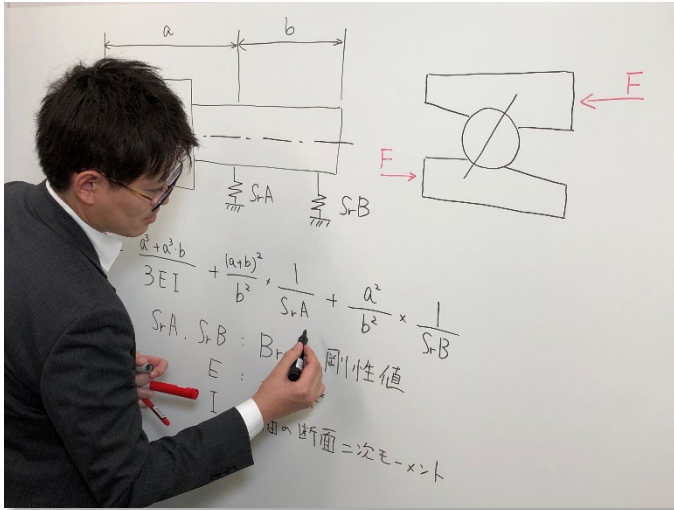 a b
F
F
SrA SrB
a³+a³·b / 3EI + (a+b)² / b² × 1 / SrA + a² / b² × 1 / SrB
SrA, SrB : Br 剛性値
E :
I
の断面二次モーメント